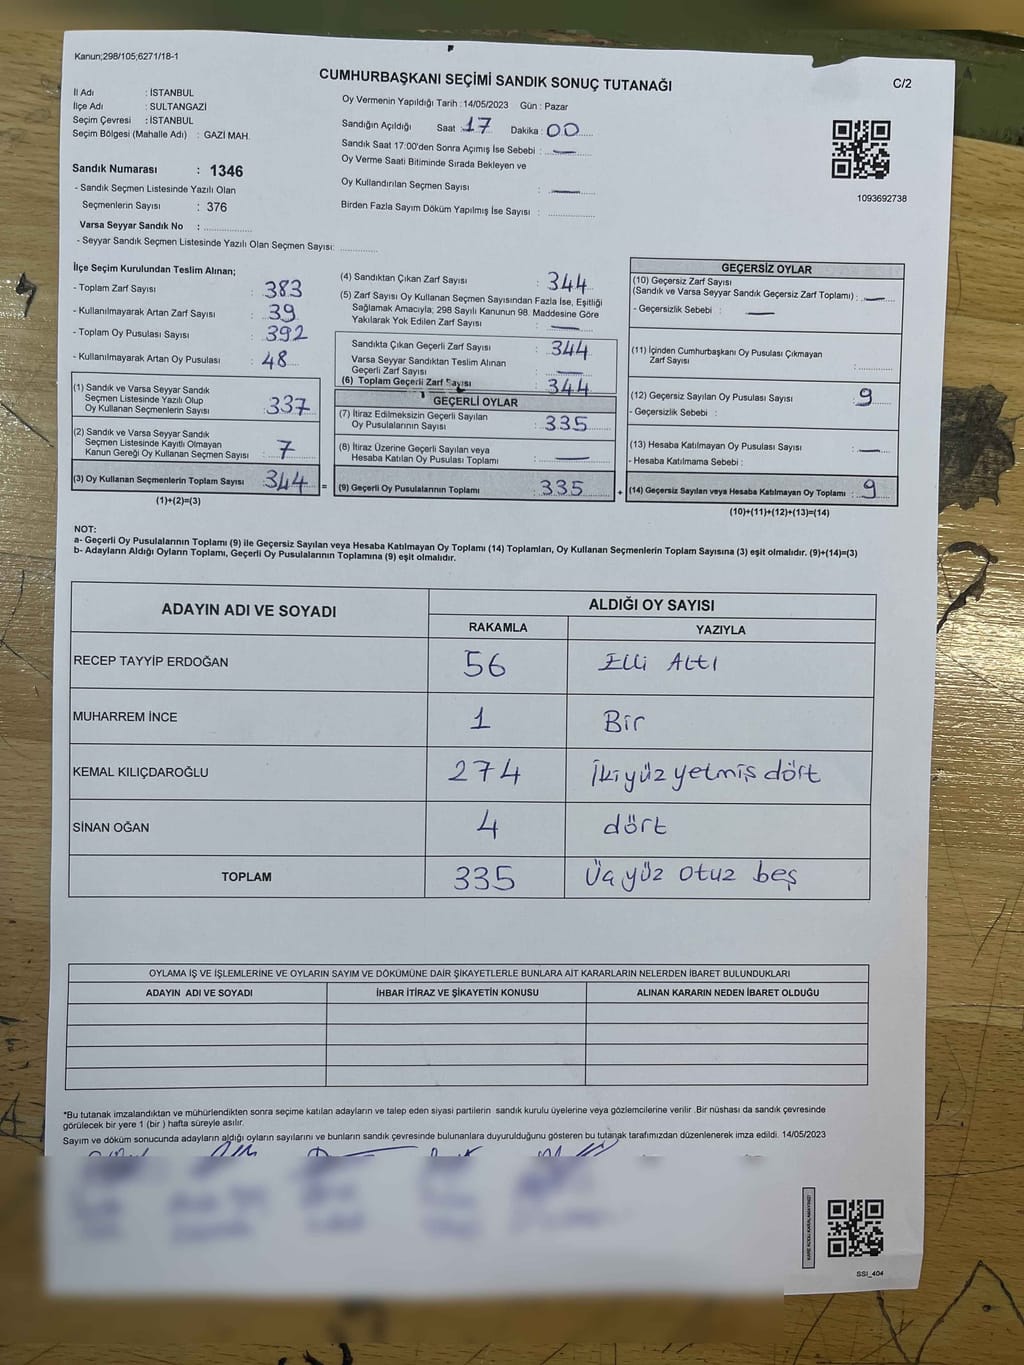 Kanun;298/105;6271/18-1
CUMHURBAŞKANI SEÇİMİ SANDIK SONUÇ TUTANAĞI
C/2
İl Adı : İSTANBUL
İlçe Adı : SULTANGAZİ
Seçim Çevresi : İSTANBUL
Seçim Bölgesi (Mahalle Adı) : GAZİ MAH.
Sandık Numarası : 1346
- Sandık Seçmen Listesinde Yazılı Olan
Seçmenlerin Sayısı : 376
Varsa Seyyar Sandık No : ...............
- Seyyar Sandık Seçmen Listesinde Yazılı Olan Seçmen Sayısı: ............
Oy Vermenin Yapıldığı Tarih : 14/05/2023 Gün : Pazar
Sandığın Açıldığı Saat : 17 Dakika : 00
Sandık Saat 17:00'den Sonra Açımış İse Sebebi : —
Oy Verme Saati Bitiminde Sırada Bekleyen ve
Oy Kullandırılan Seçmen Sayısı : —
Birden Fazla Sayım Döküm Yapılmış İse Sayısı : ...............
1093692738
İlçe Seçim Kurulundan Teslim Alınan;
- Toplam Zarf Sayısı : 383
- Kullanılmayarak Artan Zarf Sayısı : 39
- Toplam Oy Pusulası Sayısı : 392
- Kullanılmayarak Artan Oy Pusulası : 48
(1) Sandık ve Varsa Seyyar Sandık
Seçmen Listesinde Yazılı Olup
Oy Kullanan Seçmenlerin Sayısı : 337
(2) Sandık ve Varsa Seyyar Sandık
Seçmen Listesinde Kayıtlı Olmayan
Kanun Gereği Oy Kullanan Seçmen Sayısı : 7
(3) Oy Kullanan Seçmenlerin Toplam Sayısı : 344
(1)+(2)=(3)
(4) Sandıktan Çıkan Zarf Sayısı : 344
(5) Zarf Sayısı Oy Kullanan Seçmen Sayısından Fazla İse, Eşitliği
Sağlamak Amacıyla; 298 Sayılı Kanunun 98. Maddesine Göre
Yakılarak Yok Edilen Zarf Sayısı : —
Sandıkta Çıkan Geçerli Zarf Sayısı : 344
Varsa Seyyar Sandıktan Teslim Alınan
Geçerli Zarf Sayısı : —
(6) Toplam Geçerli Zarf Sayısı : 344
GEÇERLİ OYLAR
(7) İtiraz Edilmeksizin Geçerli Sayılan
Oy Pusulalarının Sayısı : 335
(8) İtiraz Üzerine Geçerli Sayılan veya
Hesaba Katılan Oy Pusulası Toplamı : —
= (9) Geçerli Oy Pusulalarının Toplamı : 335
GEÇERSİZ OYLAR
(10) Geçersiz Zarf Sayısı
(Sandık ve Varsa Seyyar Sandık Geçersiz Zarf Toplamı) : —
- Geçersizlik Sebebi : —
(11) İçinden Cumhurbaşkanı Oy Pusulası Çıkmayan
Zarf Sayısı : ............
(12) Geçersiz Sayılan Oy Pusulası Sayısı : 9
- Geçersizlik Sebebi :
(13) Hesaba Katılmayan Oy Pusulası Sayısı : —
- Hesaba Katılmama Sebebi :
+ (14) Geçersiz Sayılan veya Hesaba Katılmayan Oy Toplamı : 9
(10)+(11)+(12)+(13)=(14)
NOT:
a- Geçerli Oy Pusulalarının Toplamı (9) ile Geçersiz Sayılan veya Hesaba Katılmayan Oy Toplamı (14) Toplamları, Oy Kullanan Seçmenlerin Toplam Sayısına (3) eşit olmalıdır. (9)+(14)=(3)
b- Adayların Aldığı Oyların Toplamı, Geçerli Oy Pusulalarının Toplamına (9) eşit olmalıdır.
ADAYIN ADI VE SOYADI ALDIĞI OY SAYISI
RAKAMLA YAZIYLA
RECEP TAYYİP ERDOĞAN 56 Elli Altı
MUHARREM İNCE 1 Bir
KEMAL KILIÇDAROĞLU 274 İkiyüz yetmiş dört
SİNAN OĞAN 4 dört
TOPLAM 335 Üçyüz otuz beş
OYLAMA İŞ VE İŞLEMLERİNE VE OYLARIN SAYIM VE DÖKÜMÜNE DAİR ŞİKAYETLERLE BUNLARA AİT KARARLARIN NELERDEN İBARET BULUNDUKLARI
ADAYIN ADI VE SOYADI İHBAR İTİRAZ VE ŞİKAYETİN KONUSU ALINAN KARARIN NEDEN İBARET OLDUĞU
*Bu tutanak imzalandıktan ve mühürlendikten sonra seçime katılan adayların ve talep eden siyasi partilerin sandık kurulu üyelerine veya gözlemcilerine verilir .Bir nüshası da sandık çevresinde
görülecek bir yere 1 (bir ) hafta süreyle asılır.
Sayım ve döküm sonucunda adayların aldığı oyların sayılarını ve bunların sandık çevresinde bulunanlara duyurulduğunu gösteren bu tutanak tarafımızdan düzenlenerek imza edildi. 14/05/2023
SSI_404